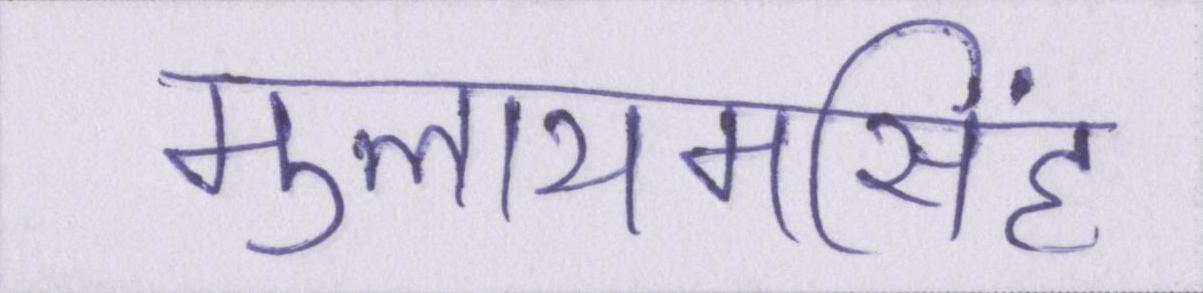 मुलायमसिंह